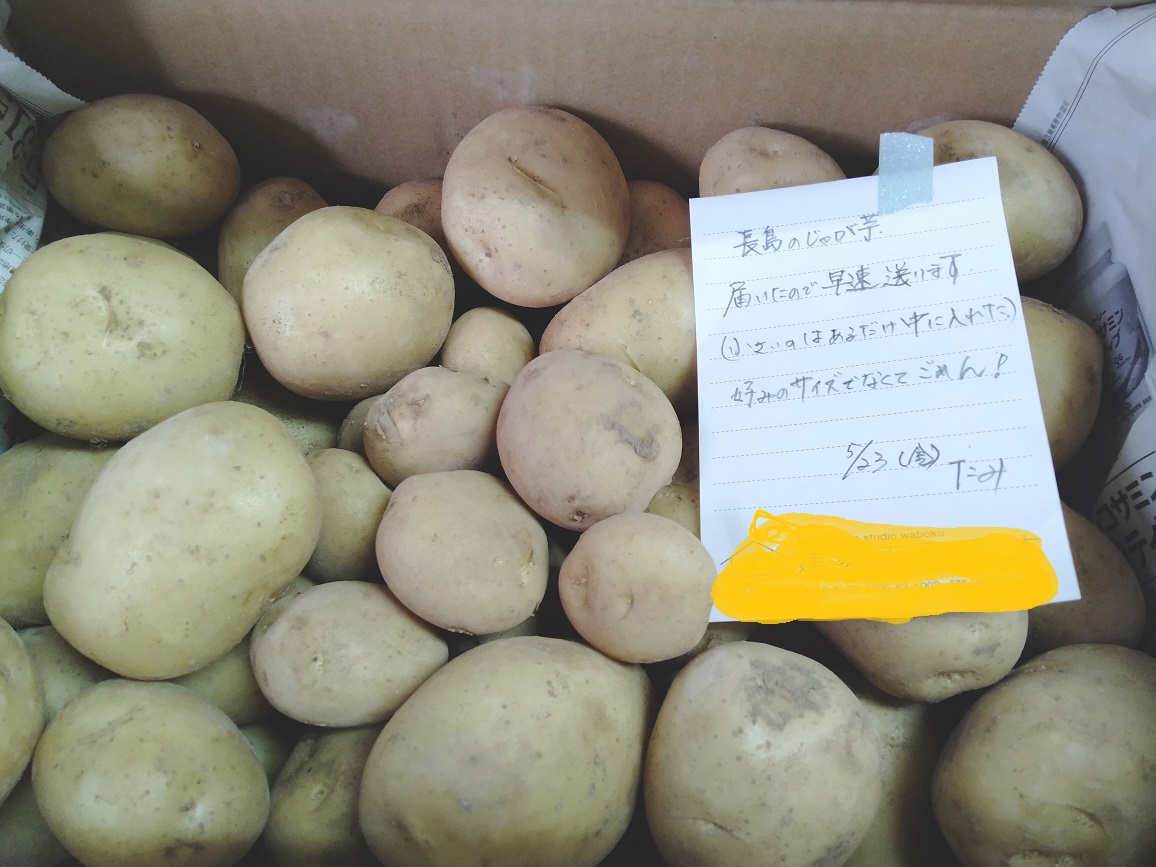 長島のじゃが芋
届いたので早速送ります
(小さいのはあるだけ中に入れた)
好みのサイズでなくてごめん!
5/23(金)
studio waboku
コサミン